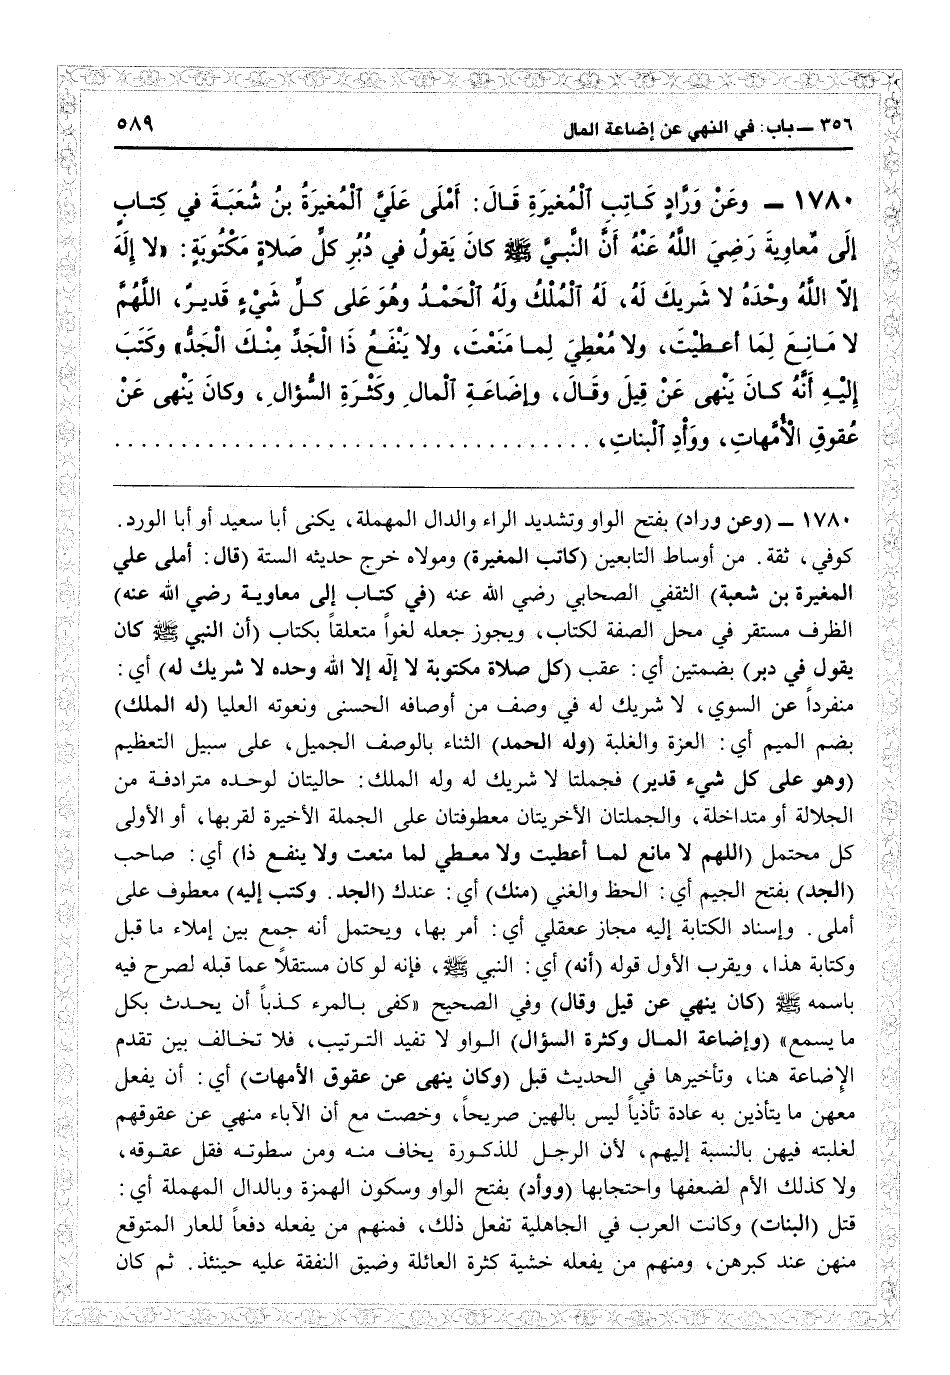 ٣٥٦ ـ باب: في النهي عن إضاعة المال ٥٨٩
١٧٨٠ ـ وعَنْ وَرَّادٍ كَاتِبِ ٱلْمُغيرَةِ قَـالَ: أَمْلَى عَلَيَّ ٱلْمُغيرَةُ بنُ شُعبَـةَ في كِتـابٍ
إلَى مُعاوِيةَ رَضِيَ اللَّهُ عَنْهُ أَنَّ النَّبيَّ ﷺ كانَ يَقولُ في دُبُرِ كلِّ صَلاةٍ مَكْتُوبَةٍ: «لا إلَهَ
إلاّ اللَّهُ وحْدَهُ لا شَريكَ لَهُ، لَهُ ٱلْمُلْكُ ولَهُ ٱلْحَمْـدُ وهُوَ عَلى كـلِّ شَيْءٍ قَديـرٌ، اللَّهُمَّ
لا مَـانِـعَ لِمَا أعـطَيْتَ، ولا مُعْطِيَ لِمـا مَنَعْتَ، ولا يَنْفَـعُ ذَا الْجَدِّ مِنْـكَ الْجَدُّ» وكَتَبَ
إلَيْـهِ أَنَّهُ كـانَ يَنْهى عَنْ قِيلَ وقَـالَ، وإضَاعَـةِ ٱلْمالِ وكَثْـرَةِ السُّؤالِ، وكانَ يَنْهى عَنْ
عُقوقِ الأُمَّهاتِ، ووَأْدِ ٱلْبناتِ، . . . . . . . . . . . . . . . . . . . . . . . . . . . . . . . . . . .
١٧٨٠ ـ (وعن وراد) بفتح الواو وتشديد الراء والدال المهملة، يكنى أبا سعيد أو أبا الورد.
كوفي، ثقة. من أوساط التابعين (كاتب المغيرة) ومولاه خرج حديثه الستة (قال: أملى علي
المغيرة بن شعبة) الثقفي الصحابي رضي الله عنه (في كتـاب إلى معاويـة رضي الله عنه)
الظرف مستقر في محل الصفة لكتاب، ويجوز جعله لغواً متعلقاً بكتاب (أن النبي ﷺ كان
يقول في دبر) بضمتين أي: عقب (كل صلاة مكتوبة لا إلٓه إلا الله وحده لا شريك له) أي:
منفرداً عن السوي، لا شريك له في وصف من أوصافه الحسنى ونعوته العليا (له الملك)
بضم الميم أي: العزة والغلبة (وله الحمد) الثناء بالوصف الجميل، على سبيل التعظيم
(وهو على كل شيء قدير) فجملتا لا شريك له وله الملك: حاليتان لوحده مترادفـة من
الجلالة أو متداخلة، والجملتان الأخريتان معطوفتان على الجملة الأخيرة لقربها، أو الأولى
كل محتمل (اللهم لا مانع لمـا أعطيت ولا معـطي لما منعت ولا ينفـع ذا) أي: صاحب
(الجد) بفتح الجيم أي: الحظ والغني (منك) أي: عندك (الجد. وكتب إليه) معطوف على
أملى. وإسناد الكتابة إليه مجاز ععقلي أي: أمر بها، ويحتمل أنه جمع بين إملاء ما قبل
وكتابة هذا، ويقرب الأول قوله (أنه) أي: النبي ﷺ، فإنه لو كان مستقلاً عما قبله لصرح فيه
باسمه ﷺ (كان ينهي عن قيل وقال) وفي الصحيح «كفى بـالمرء كـذباً أن يحـدث بكل
ما يسمع» (وإضاعة المـال وكثرة السؤال) الـواو لا تفيد التـرتيب، فلا تخـالف بين تقدم
الإضاعة هنا، وتأخيرها في الحديث قبل (وكان ينهى عن عقوق الأمهات) أي: أن يفعل
معهن ما يتأذين به عادة تأذياً ليس بالهين صريحاً، وخصت مع أن الآباء منهي عن عقوقهم
لغلبته فيهن بالنسبة إليهم، لأن الرجـل للذكـورة يخاف منـه ومن سطوتـه فقل عقـوقه،
ولا كذلك الأم لضعفها واحتجابها (ووأد) بفتح الواو وسكون الهمزة وبالدال المهملة أي:
قتل (البنات) وكانت العرب في الجاهلية تفعل ذلك، فمنهم من يفعله دفعاً للعار المتوقع
منهن عند كبرهن، ومنهم من يفعله خشية كثرة العائلة وضيق النفقة عليه حينئذ. ثم كان